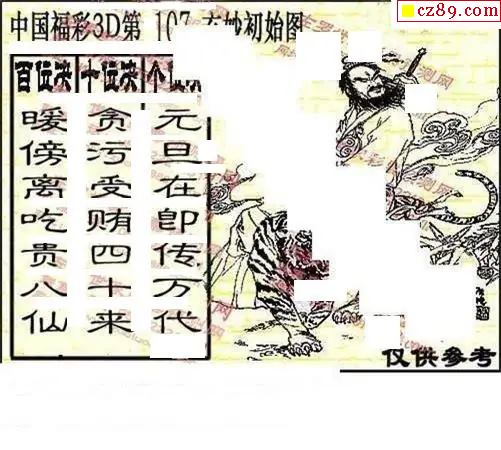 cz89.com
中国福彩3D第 107 初始图
百位决 十位决 个
暖 贪 元
傍 污 旦
离 受 在
吃 贿 即
贵 四 传
八 十 万
仙 来 代
仅供参考